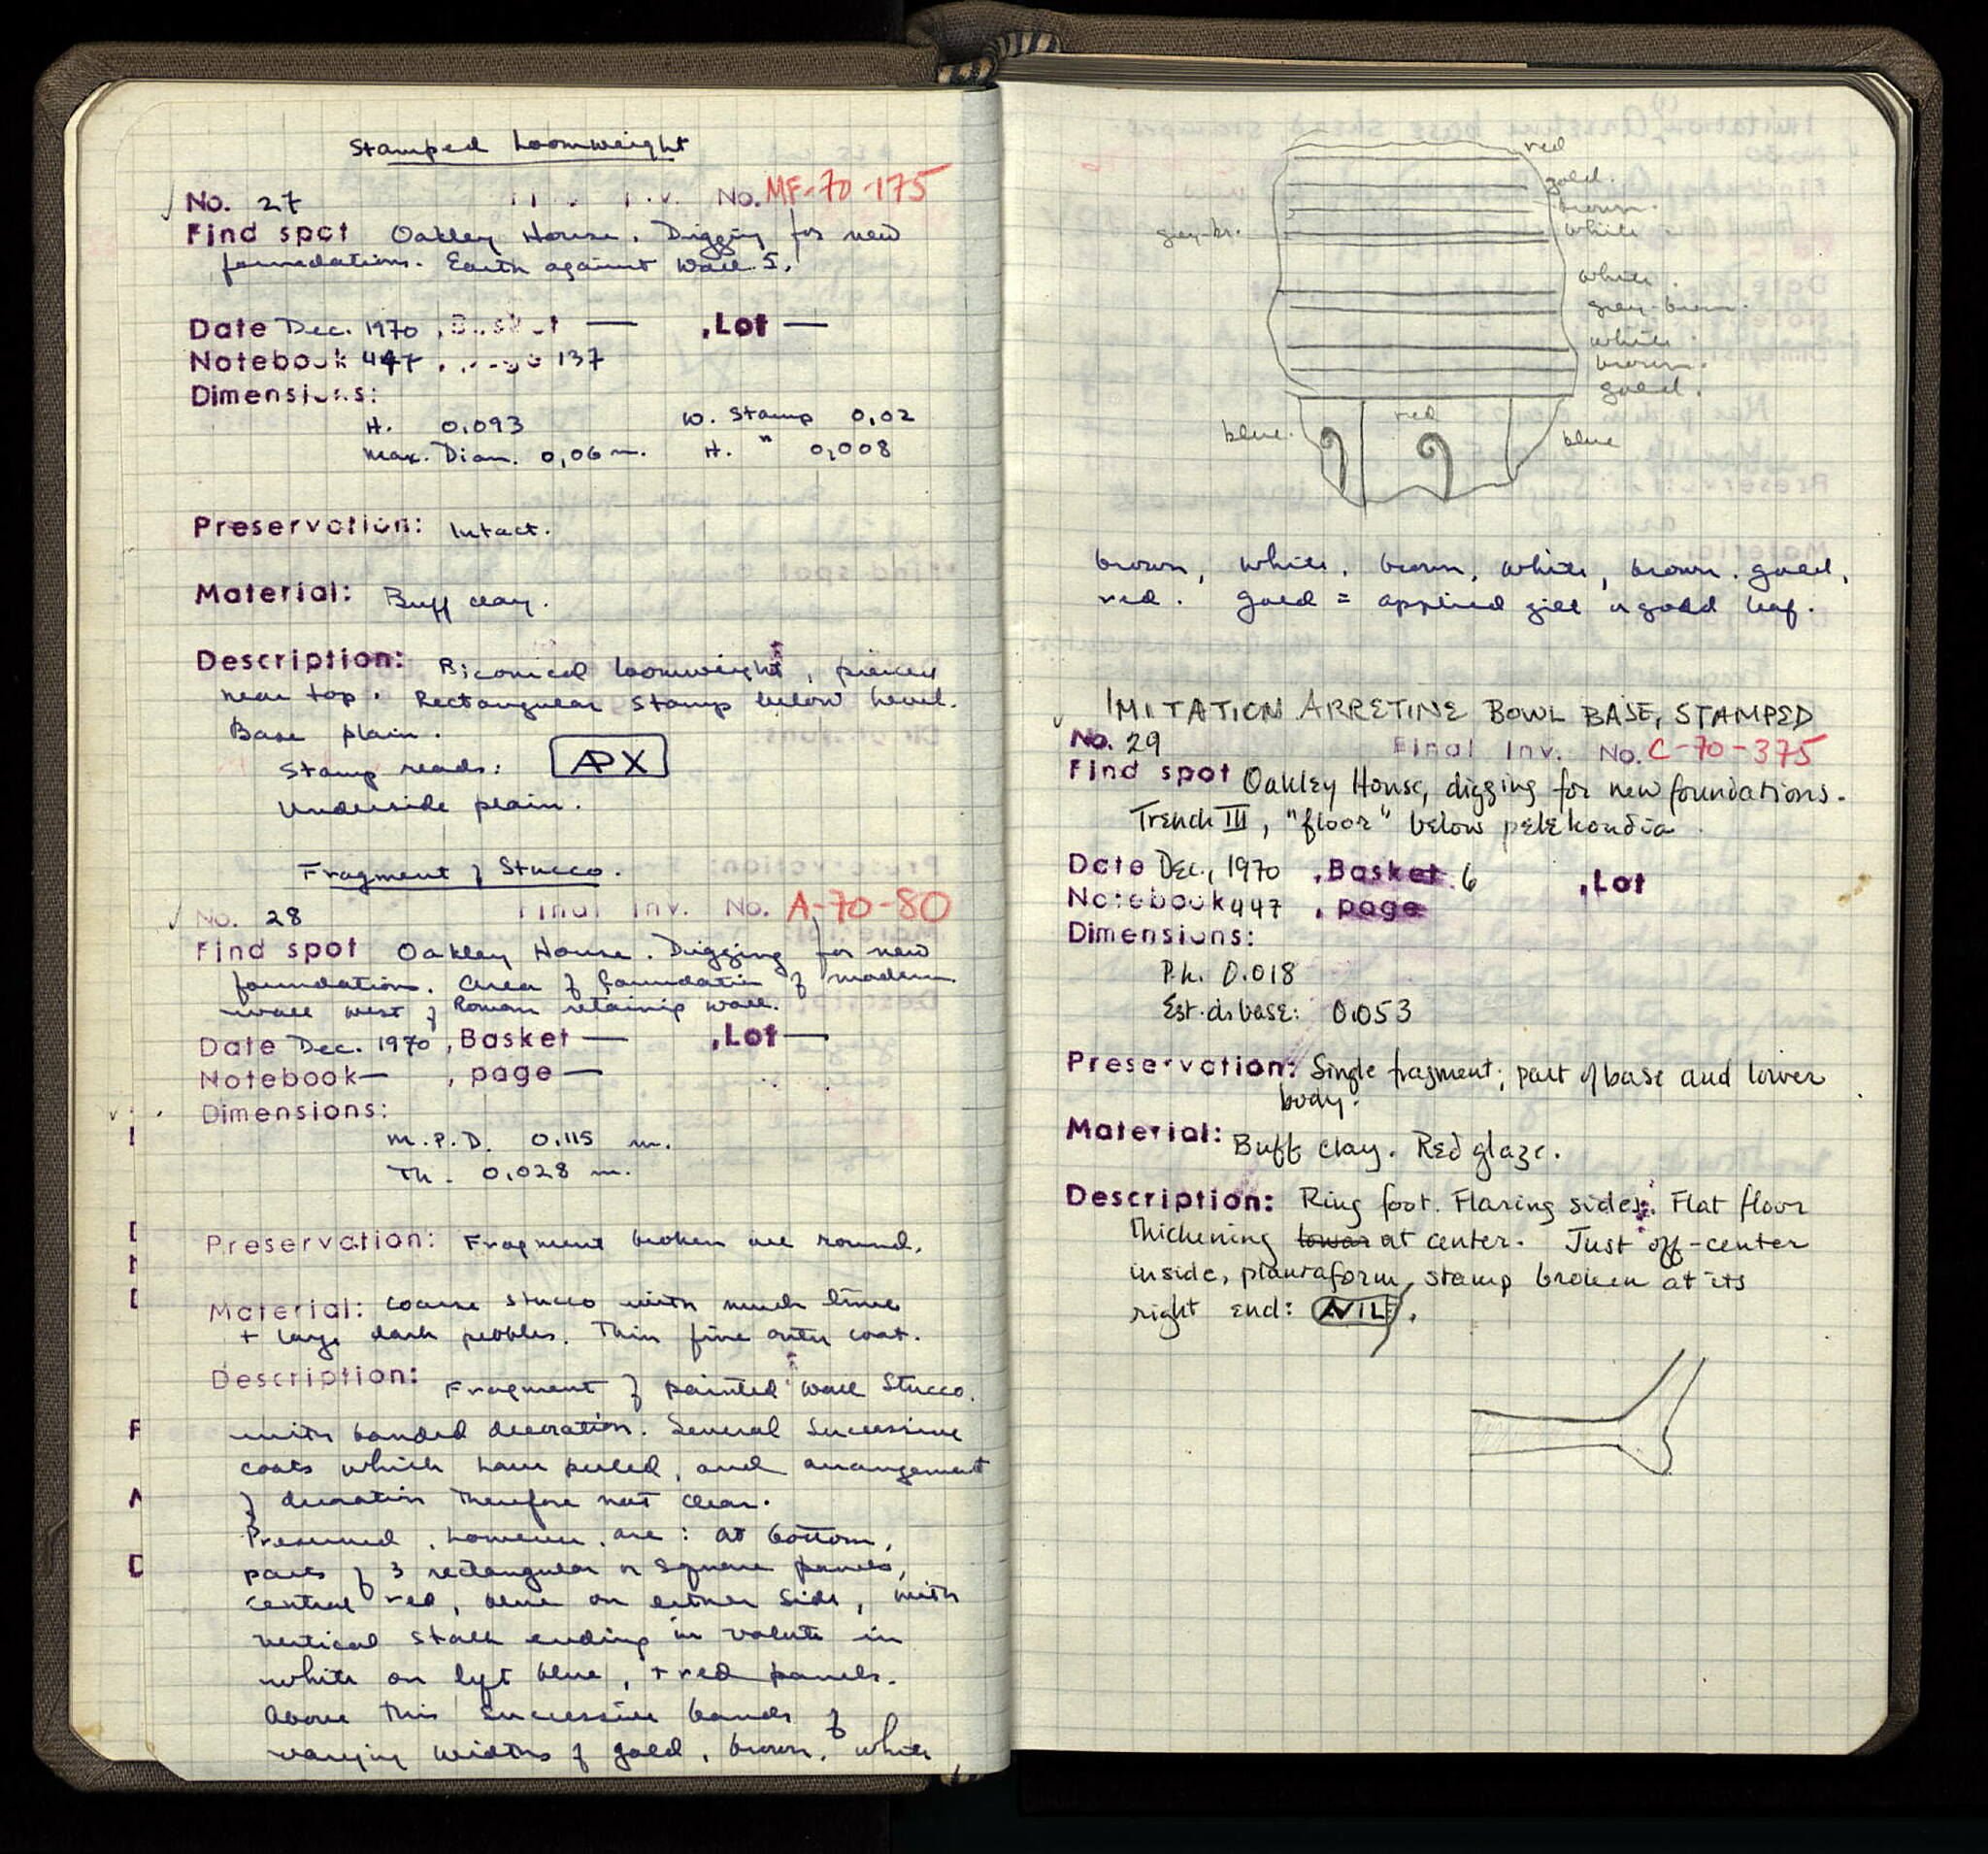 Stamped Loomweight
No. 27 No. MF-70-175
Find spot Oakley House. Digging for new
foundations. Earth against Wall 5.
Date Dec. 1970, Basket — , Lot —
Notebook 447, page 137
Dimensions:
H. 0.093 W. Stamp 0,02
Max. Diam. 0,06 m. H. " 0,008
Preservation: Intact.
Material: Buff clay.
Description: Biconical loomweight, pierced
near top. Rectangular stamp below bevel.
Base plain.
Stamp reads: APX
Underside plain.
Fragment of Stucco.
No. 28 Final Inv. No. A-70-80
Find spot Oakley House. Digging for new
foundation. Area of foundation of modern
wall west of Roman retaining wall.
Date Dec. 1970, Basket — , Lot —
Notebook — , page —
Dimensions:
M.P.D. 0.115 m.
Th. 0.028 m.
Preservation: Fragment broken all round.
Material: Coarse stucco with much lime
+ large dark pebbles. Thin fine outer coat.
Description: Fragment of painted wall stucco
with banded decoration. Several successive
coats which have peeled, and arrangement
of decoration therefore not clear.
Preserved, however, are: at bottom,
parts of 3 rectangular or square panels,
central red, blue on either side, with
vertical stalk ending in volute in
white on left blue, + red panels.
Above this successive bands of
varying widths of gold, brown, white,
red
gold.
brown.
white
grey-br.
white.
grey-brown.
white.
brown.
gold.
red
blue. blue
brown, white, brown, white, brown, gold,
red. Gold = applied gilt or gold leaf.
IMITATION ARRETINE BOWL BASE, STAMPED
No. 29 Final Inv. No. C-70-375
Find spot Oakley House, digging for new foundations.
Trench III, "floor" below pelekoudia.
Date Dec., 1970, Basket 6 , Lot
Notebook 447, page
Dimensions:
P.h. 0.018
Est. d. base: 0.053
Preservation: Single fragment; part of base and lower
body.
Material: Buff clay. Red glaze.
Description: Ring foot. Flaring sides. Flat floor
thickening towar at center. Just off-center
inside, plantaform, stamp broken at its
right end: NILE.